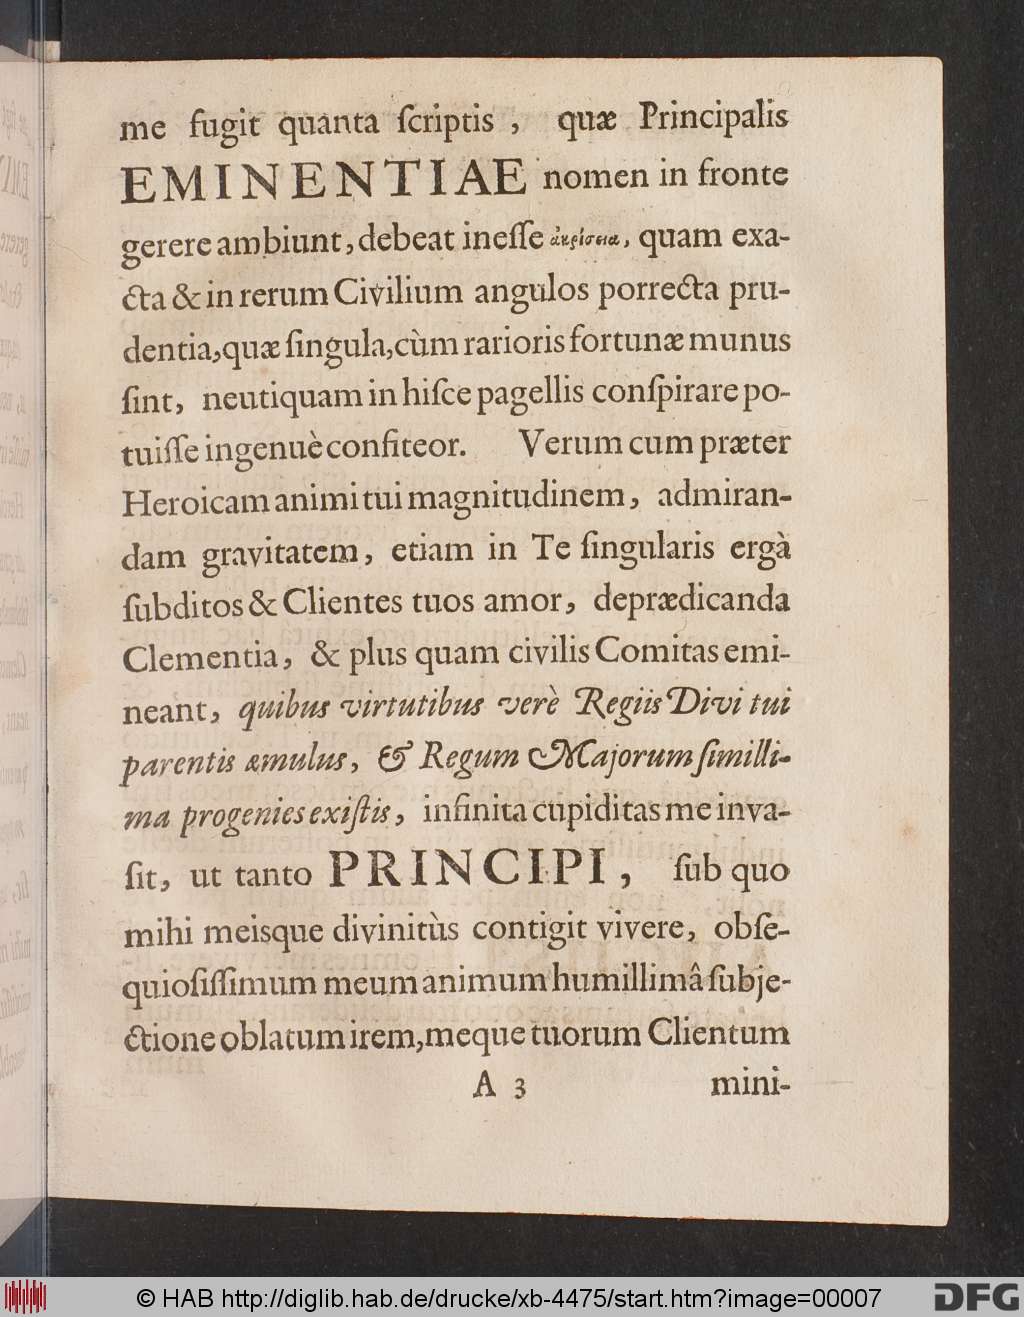 me fugit quanta ſcriptis , quæ Principalis
EMINENTIAE nomen in fronte
gerere ambiunt, debeat ineſſe ἀκρίσεια, quam exa-
cta & in rerum Civilium angulos porrecta pru-
dentia, quæ ſingula, cùm rarioris fortunæ munus
ſint, neutiquam in hiſce pagellis conſpirare po-
tuiſſe ingenuè confiteor. Verum cum præter
Heroicam animi tui magnitudinem, admiran-
dam gravitatem, etiam in Te ſingularis ergà
ſubditos & Clientes tuos amor, deprædicanda
Clementia, & plus quam civilis Comitas emi-
neant, quibus virtutibus verè Regiis Divi tui
parentis æmulus, & Regum Majorum ſimilli-
ma progenies exiſtis, infinita cupiditas me inva-
ſit, ut tanto PRINCIPI, ſub quo
mihi meisque divinitùs contigit vivere, obſe-
quioſiſſimum meum animum humillimâ ſubje-
ctione oblatum irem, meque tuorum Clientum
A 3 mini-
© HAB http://diglib.hab.de/drucke/xb-4475/start.htm?image=00007
DFG